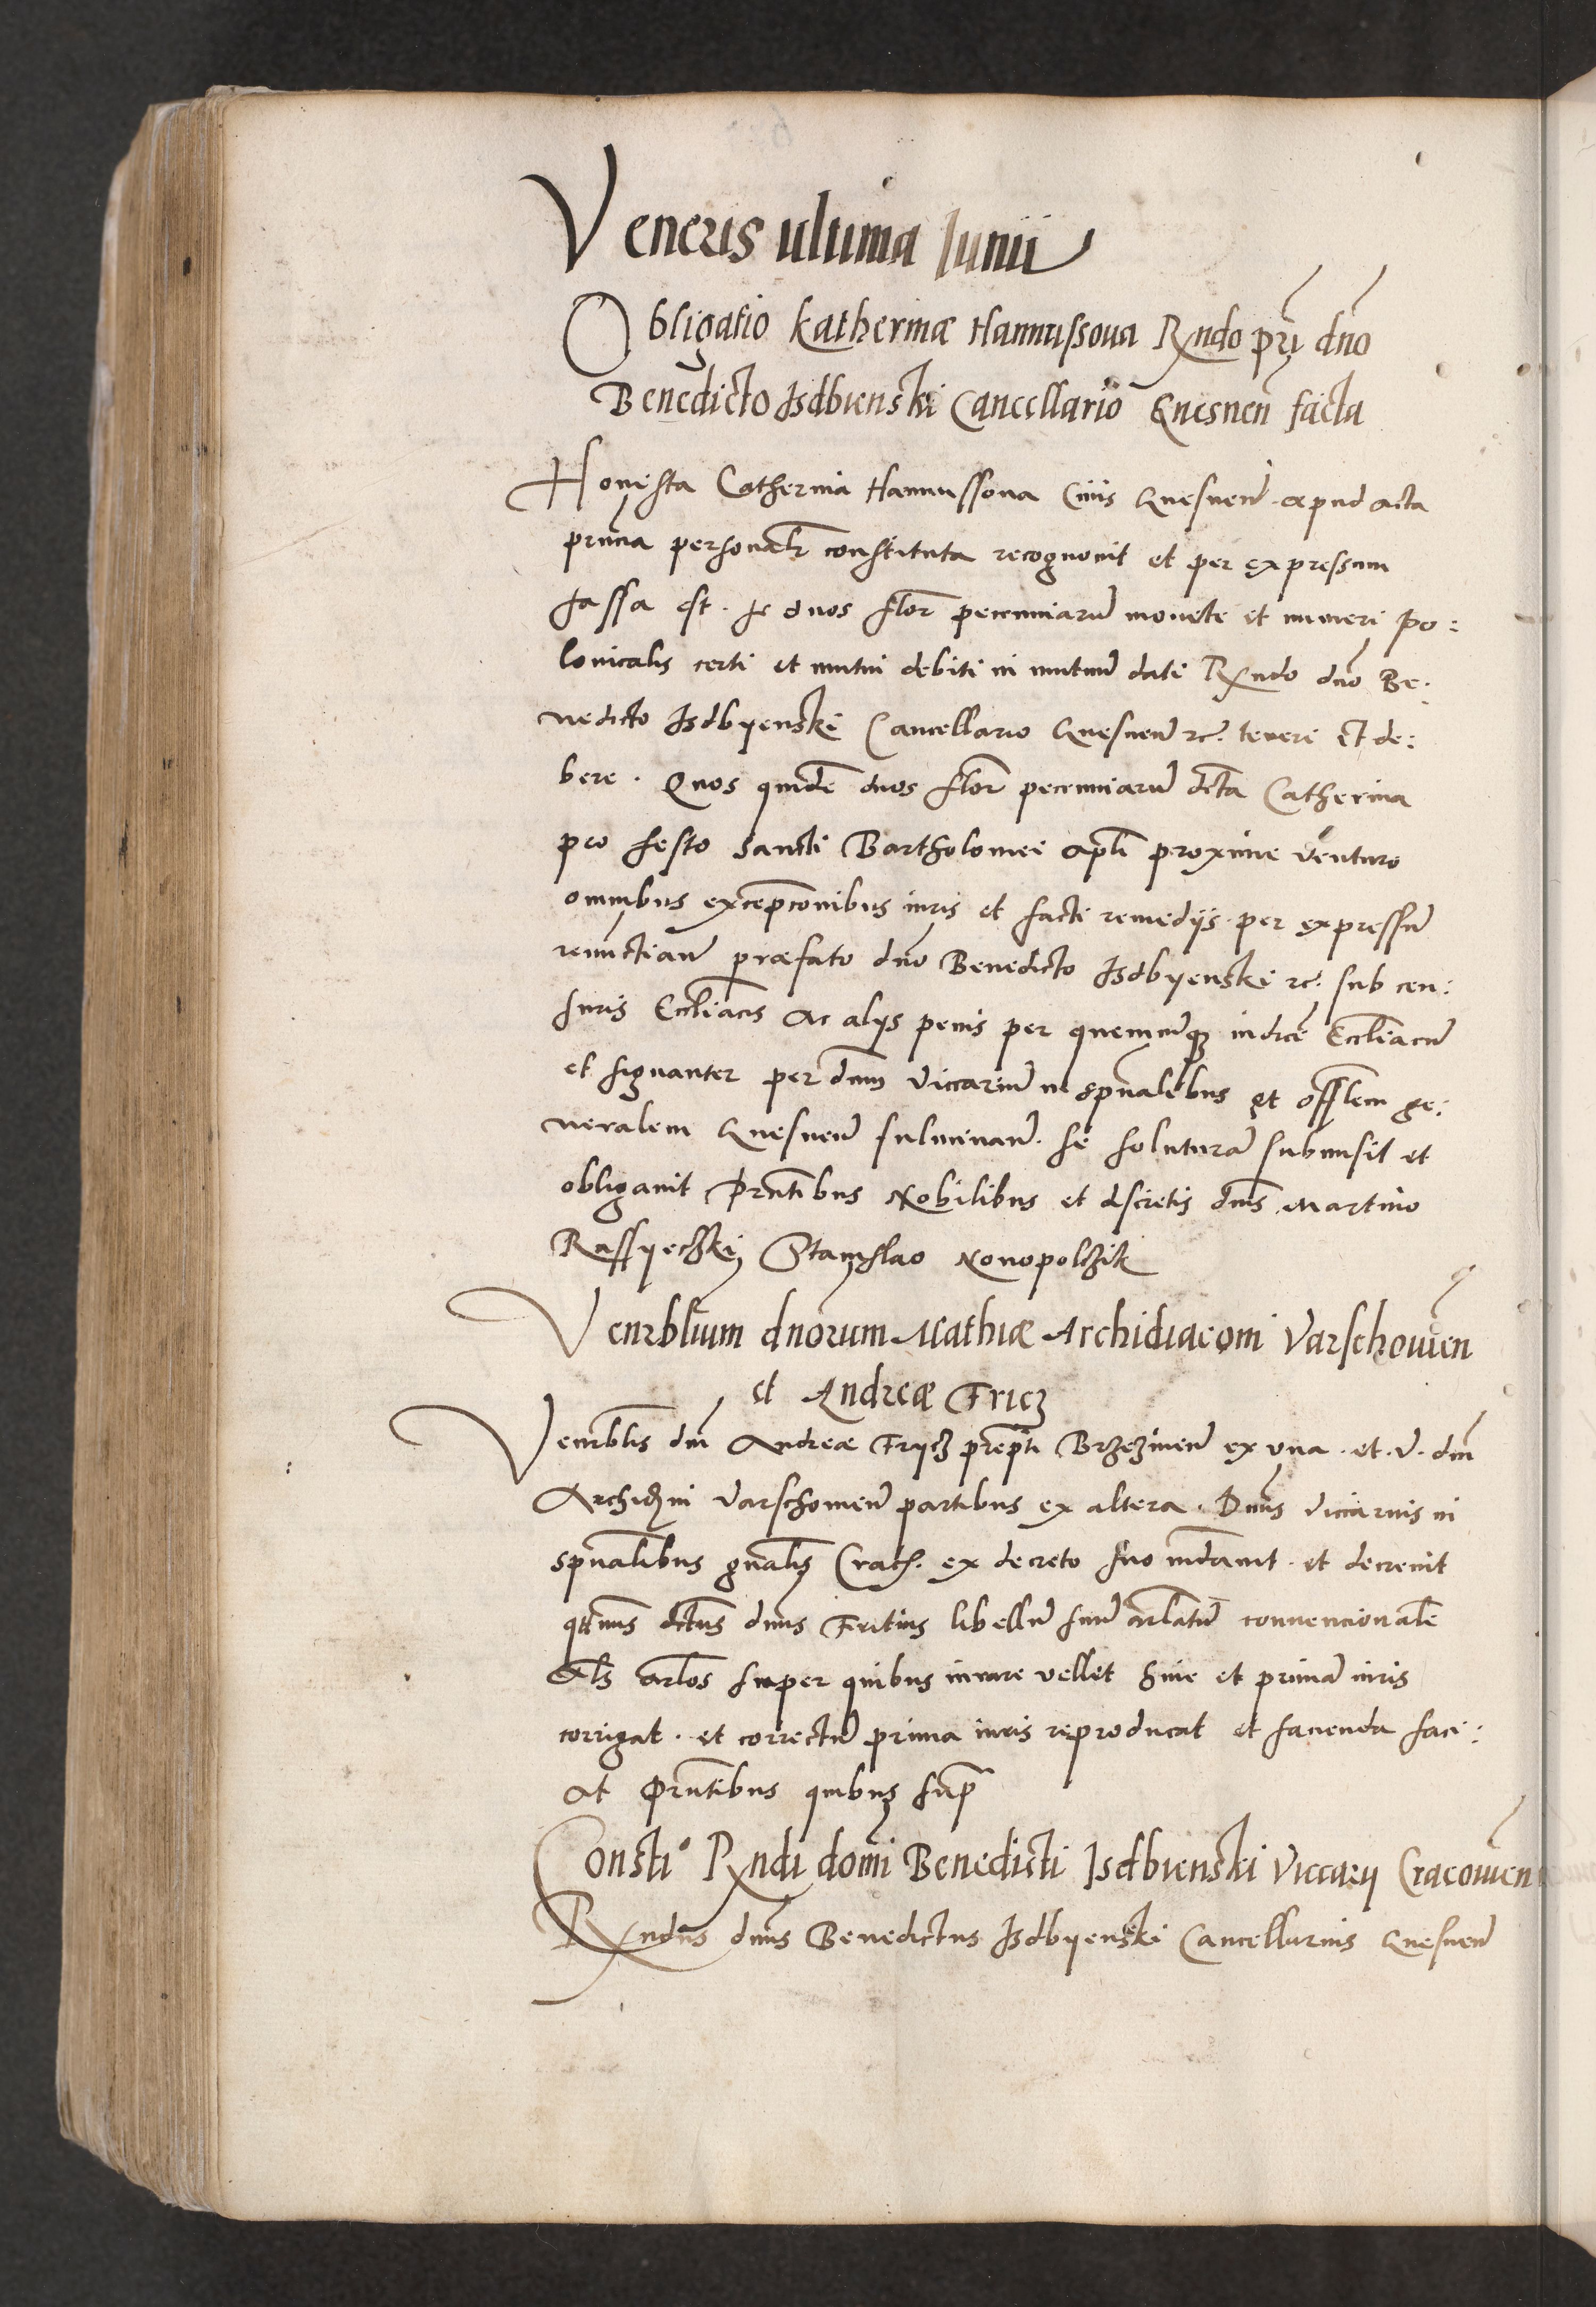 Veneris ultima Iunii
Obligatio Katherinæ Hannussova Rndo prī dno
Benedicto Isdbienski Cancellario Gnesnen facta
Honesta Catherina Hannussova Civis Gnesnen apud acta
prntia personalr constituta recognovit et per expressum
fassa est. se duos flor pecunniarū monete et numeri Po:
lonicalis certi et mutui debiti in mutuū dati Rndo dno Be:
nedicto Isdbyenski Cancellario Gnesnen rc. teneri et de:
bere. Quos quidē duos flor pecunniarū dcta Catherina
pro festo Sancti Bartholomei apli proxime venturo
omnibus excepconibus iuris et facti remedijs per expressū
renuctian præfato dno Benedicto Isdbyenski rc. sub cen:
suris Eccliacis ac alijs penis per quemcunqz iudicē Eccliacū
et signanter per dnm viccariū in spualibus et offlem ge:
neralem Gnesnen fulminan. se soluturā submisit et
obligavit Prntibus Nobilibus et discretis dnis Martino
Rassyeczki Stanislao Novopolczik
Venrblium dnorum Mathiæ Archidiaconi Varschovien
et Andreæ Fricz
Venrblis dni Andreæ Frycz prepti Brzezinen ex una et v. dni
Archidni Varschovien partibus ex altera. Dnus viccarius in
spualibus gnalis Crac. ex decreto suo mdavit et decrevit
qtnus dctus dnus Fritius libellū suū arlatū convencionalē
als arlos super quibus iurare vellet hinc et primā iuris
corrigat. et correctū prima iuris reproducat et facienda faci:
at Prntibus quibus supra
Constio Rndi domi Benedicti Isdbienski Viccarij Cracovien
Rndus dnus Benedictus Isdbyenski Cancellarius Gnesnen